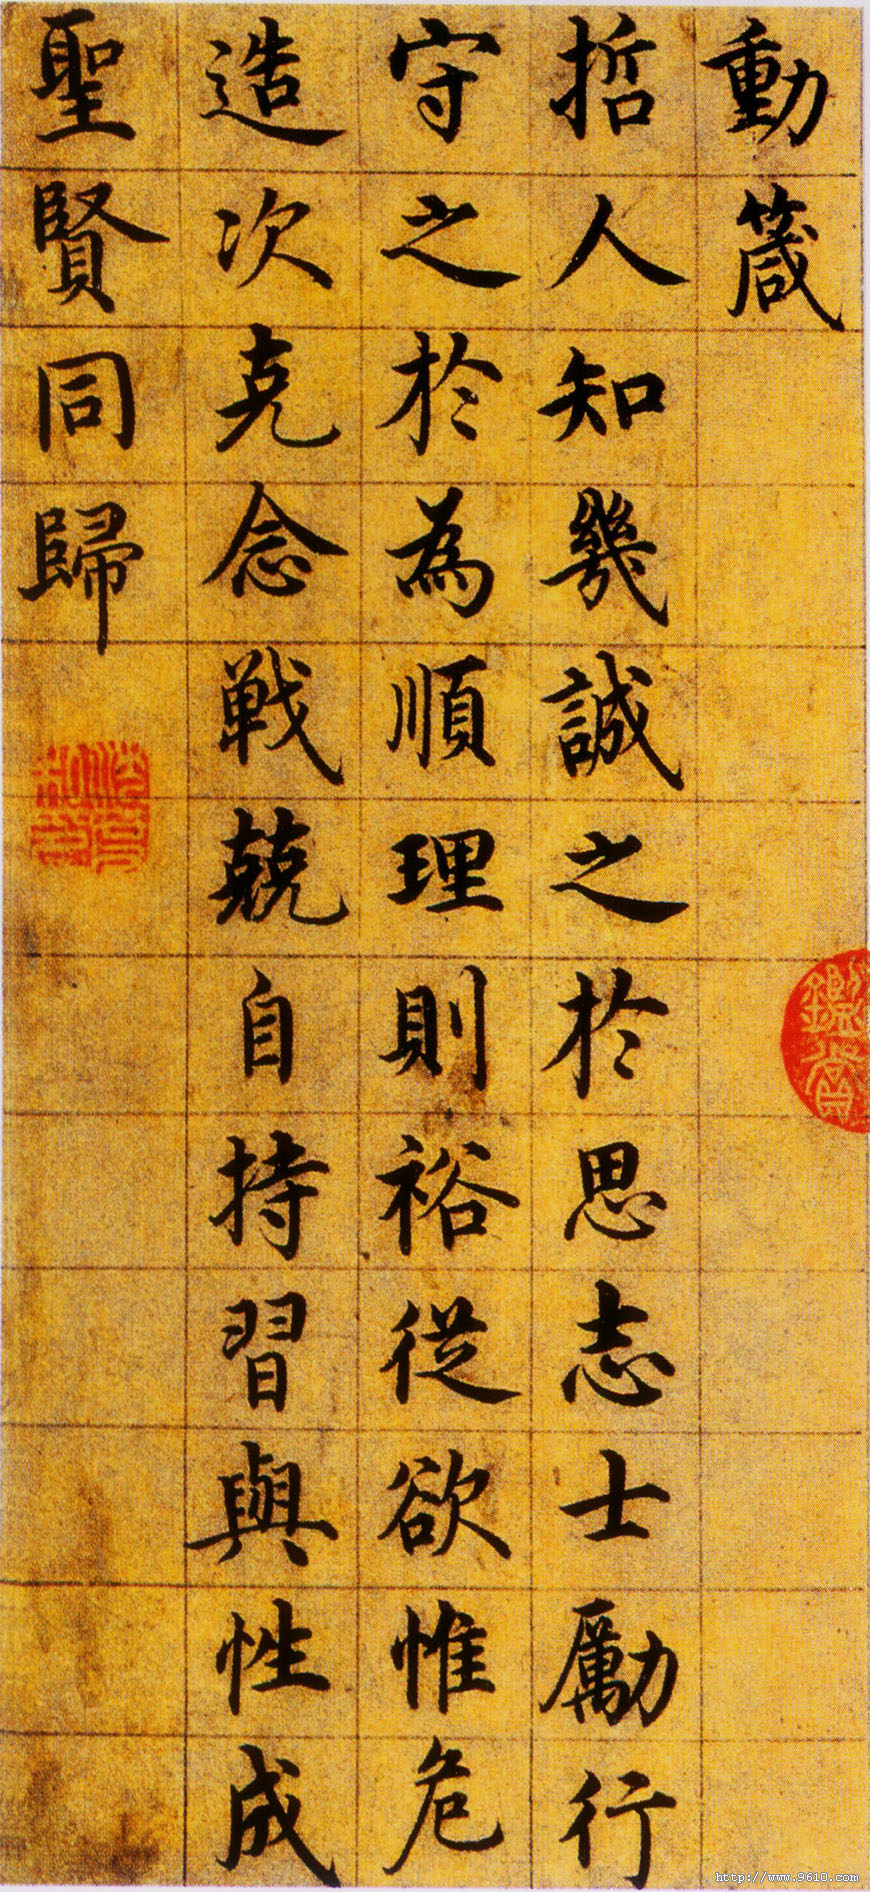 動箴
哲人知幾誠之於思志士勵行
守之於為順理則裕從欲惟危
造次克念戦兢自持習與性成
聖賢同歸
http://www.9610.com